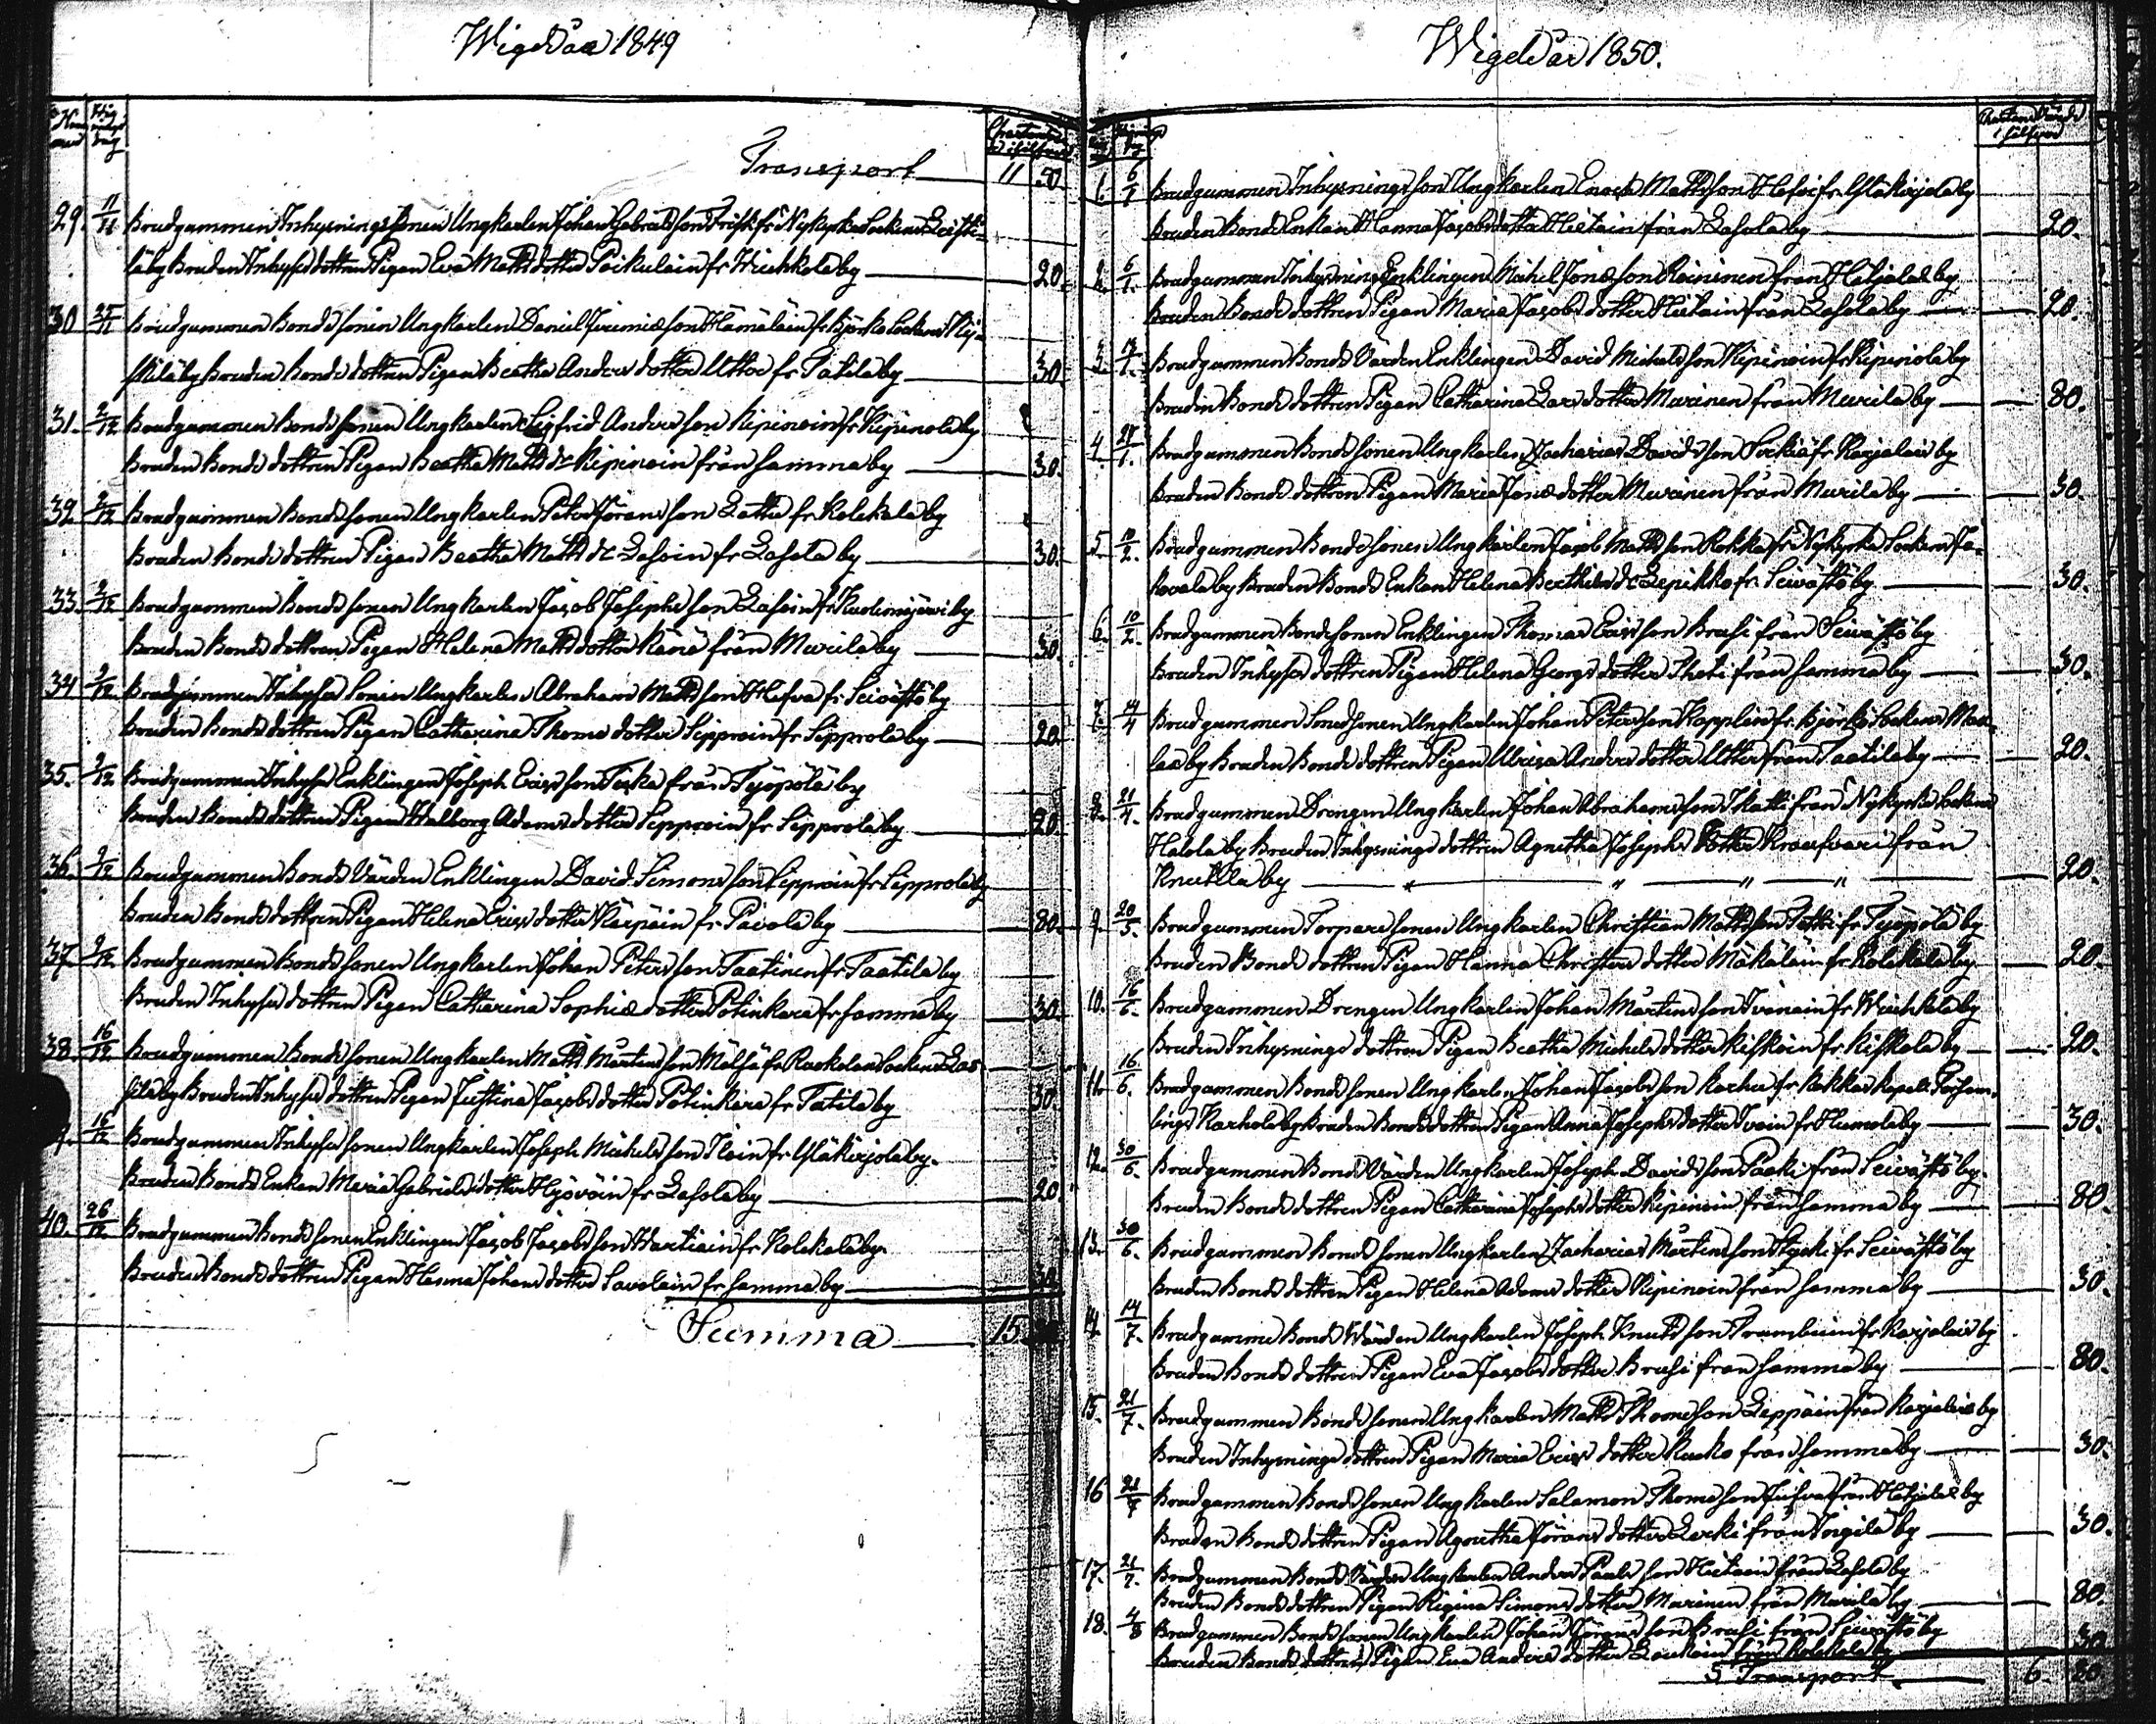 Wigde år 1849
Transport 11 50
29. 11/11 Brudgummen Inhysningssonen Ungkarlen Johan Gabrielsson Frisk fr Nykyrka Sockens Leisti-
lä by Bruden Inhyses dottren Pigan Eva Matts dotter Poikulain fr Wuchkola by 20.
30 25/11 Brudgummen Bondesonen Ungkarlen Daniel Jeremiæson Hämäläin fr Björkö Sockens
by Bruden Bonde dottren Pigan Beatha Anders dotter Utter fr Tatila by 30
31. 2/12 Brudgummen Bondesonen Ungkarlen Sigfrid Andersson Kipinoin fr Kipinola by
Bruden Bonde dottren Pigan Beatha Matts dr Kipinoin från samma by 30.
32. 2/12 Brudgummen Bondesonen Ungkarlen Peter Göransson Lattu fr Kolekala by
Bruden Bonde dottren Pigan Beatha Matts dr Lasoin fr Lasola by 30.
33. 2/12 Brudgummen Bondesonen Ungkarlen Jacob Josephsson Lasoin fr Kuolemajärvi by
Bruden Bonde dottren Pigan Helena Matts dotter Känä från Murila by 30.
34 2/12 Brudgummen Inhyses Sonen Ungkarlen Abraham Mattsson Hofva fr Seivästö by
Bruden Bonde dottren Pigan Catharina Thoms dotter Sipproin fr Sipprola by 20.
35. 2/12 Brudgummen Inhyses Enklingen Joseph Ericsson Torka från Tyøpölä by
Bruden Bonde dottren Pigan Walborg Adams dotter Sipproin fr Sipprola by 20.
36. 2/12 Brudgummen Bonde Värden Enklingen David Simonsson Sipproin fr Sipprola by
Bruden Bonde dottren Pigan Helena Erics dotter Kärpäin fr Pävola by 80.
37 2/12 Brudgummen Bondesonen Ungkarlen Johan Petersson Taatinen fr Taatila by
Bruden Inhyses dottren Pigan Catharina Sophiæ dotter Potinkara fr samma by 30.
38. 16/12 Brudgummen Bondesonen Ungkarlen Matts Mårtensson Mälsä fr Sockens
by Bruden Inhyses dottren Pigan Justina Jacobs dotter Potinkara fr Tatila by 30.
9. 16/12 Brudgummen Inhyses sonen Ungkarlen Joseph Michelsson Iloin fr Yläkirjola by
Bruden Bonde Enkan Maria Gabriels dotter Hyvöin fr Lasola by 20
40. 26/12 Brudgummen Bondesonen Enklingen Jacob Jacobsson Wartiain fr Kolekala by
Bruden Bonde dottren Pigan Hanna Johans dotter Savolain fr samma by 30
Summa 15.
Wigde år 1850.
1. 6/1 Brudgummen Inhysnings son Ungkarlen Enoch Mattsson Hofoi fr Yläkirjola by
Bruden Bonde Enkan Hanna Jacobs dotter Hietain från Lasola by 20.
2. 6/1. Brudgummen Inhysnings Enklingen Michel Jonæson Roininen från Hatjalax by
Bruden Bonde dottren Pigan Maria Jacobs dotter Hietain från Lasola by 20.
3. 13/1. Brudgummen Bonde Värden Enklingen David Michelsson Kipinoin fr Kipinola by
Bruden Bonde dottren Pigan Catharina Lars dotter Murinen från Murila by 80.
4. 27/1. Brudgummen Bondesonen Ungkarlen Zacharias Davidsson Sorkia fr Karjalais by
Bruden Bonde dottren Pigan Maria Jonæ dotter Murinen från Murila by 30
5 10/2. Brudgummen Bondesonen Ungkarlen Jacob Mattsson Rokka fr Nykyrka Sockens Ja-
kovala by Bruden Bonde Enkan Helena Berthils dr Lepikko fr Seivästö by 30.
6. 10/2. Brudgummen Bondesonen Enklingen Thomas Ericsson Brusi från Seivästö by
Bruden Inhyses dottren Pigan Helena Georgs dotter Theti från samma by 30.
7. 14/4 Brudgummen Smedsonen Ungkarlen Johan Petersson Kopplin fr Björkö Sockens
by Bruden Bonde dottren Pigan Ulrica Anders dotter Utter från Taatila by 20.
8. 21/4. Brudgummen Drengen Ungkarlen Johan Abrahamsson Skatti från Nykyrka Sockens
Halola by Bruden Inhysnings dottren Agnetha Josephs dotter från
Knutilla by " " " 20.
9. 20/5. Brudgummen Torpare sonen Ungkarlen Christian Mattsson Totti fr Tyøpölä by
Bruden Bonde dottren Pigan Hanna Christers dotter Mäkäläin fr Kolekala by 20.
10. 16/6. Brudgummen Drengen Ungkarlen Johan Mårtensson Ivanain fr Wuchkola by
Bruden Inhysnings dottren Pigan Beatha Michels dotter Kiskoin fr Kiskola by 20.
11. 16/6. Brudgummen Bondesonen Ungkarlen Johan Jacobsson Karhu fr Kakkis Kapells Församl-
ings Karhola by Bruden Bonde dottren Pigan Anna Josephs dotter Ivain fr Humola by 30.
12. 30/6. Brudgummen Bonde Värden Ungkarlen Joseph Davidsson Packi från Seivästö by
Bruden Bonde dottren Pigan Catharina Josephs dotter Kipinoin från samma by 80.
13. 30/6. Brudgummen Bondesonen Ungkarlen Zacharias Mårtensson Hyski fr Seivästö by
Bruden Bonde dottren Pigan Helena Adams dotter Kipinoin från samma by 30.
14 14/7. Brudgumme Bonde Värden Ungkarlen Joseph Knutsson Trambuin fr Karjalais by
Bruden Bonde dottren Pigan Eva Jacobs dotter Brusi från samma by 80.
15. 21/7. Brudgummen Bondesonen Ungkarlen Matts Thomsson Leppäin från Karjalais by
Bruden Inhysnings dottren Pigan Maria Erics dotter Kusko från samma by 30.
16 21/7 Brudgummen Bondesonen Ungkarlen Salamon Thomsson Jusva från Hatjalax by
Bruden Bonde dottren Pigan Agnetha Görans dotter Lerki från Ingila by 30.
17. 21/7. Brudgummen Bonde Värden Ungkarlen Anders Paulsson Hietain från Lasola by
Bruden Bonde dottren Pigan Regina Simons dotter Murinen från Murila by 80.
18. 4/8 Brudgummen Bondesonen Ungkarlen Johan Göransson Brusi från Seivästö by
Bruden Bonde dottren Pigan Eva Anders dotter Loukoin från Kolekala by 30
Transport 6. 80.